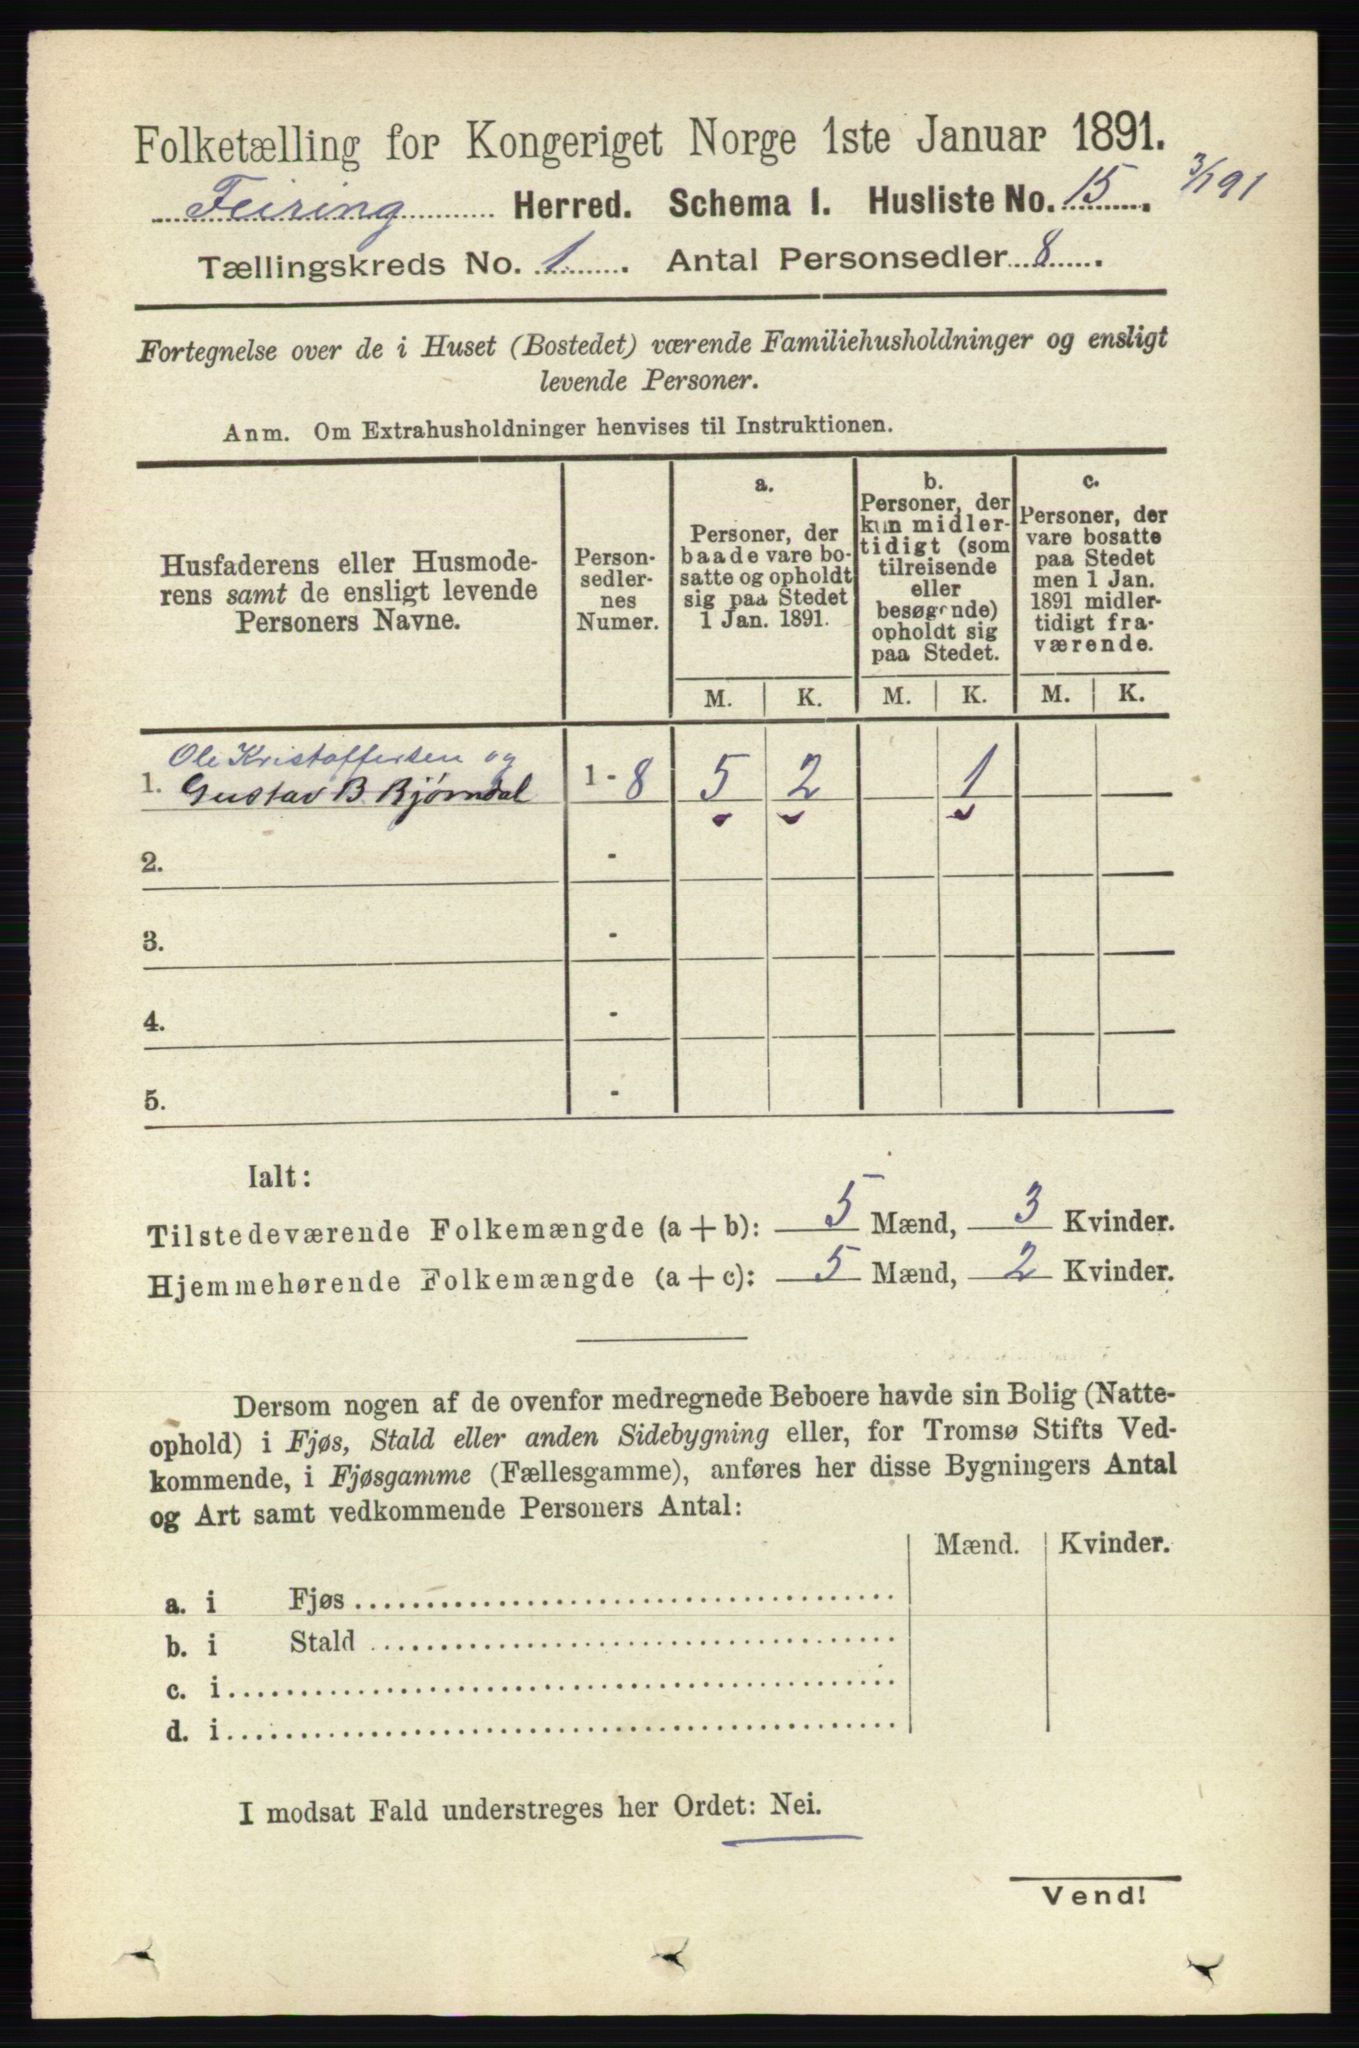 Folketælling for Kongeriget Norge 1ste Januar 1891.
Feiring Herred. Schema I. Husliste No. 15. 3/1 91
Tællingskreds No. 1. Antal Personsedler 8.
Fortegnelse over de i Huset (Bostedet) værende Familiehusholdninger og ensligt
levende Personer.
Anm. Om Extrahusholdninger henvises til Instruktionen.
Husfaderens eller Husmode-
rens samt de ensligt levende
Personers Navne.
Person-
sedler-
nes
Numer.
a.
Personer, der
baade vare bo-
satte og opholdt
sig paa Stedet
1 Jan. 1891.
b.
Personer, der
kun midler-
tidigt (som
tilreisende
eller
besøgende)
opholdt sig
paa Stedet.
c.
Personer, der
vare bosatte
paa Stedet
men 1 Jan.
1891 midler-
tidigt fra-
værende.
M. K. M. K. M. K.
Ole Kristoffersen og
1. Gustav B. Bjørndal 1 - 8 5 2 1
2. -
3. -
4. -
5. -
Ialt:
Tilstedeværende Folkemængde (a + b): 5 Mænd, 3 Kvinder.
Hjemmehørende Folkemængde (a + c): 5 Mænd, 2 Kvinder.
Dersom nogen af de ovenfor medregnede Beboere havde sin Bolig (Natte-
ophold) i Fjøs, Stald eller anden Sidebygning eller, for Tromsø Stifts Ved-
kommende, i Fjøsgamme (Fællesgamme), anføres her disse Bygningers Antal
og Art samt vedkommende Personers Antal:
Mænd. Kvinder.
a. i Fjøs
b. i Stald
c. i
d. i
I modsat Fald understreges her Ordet: Nei.
Vend!